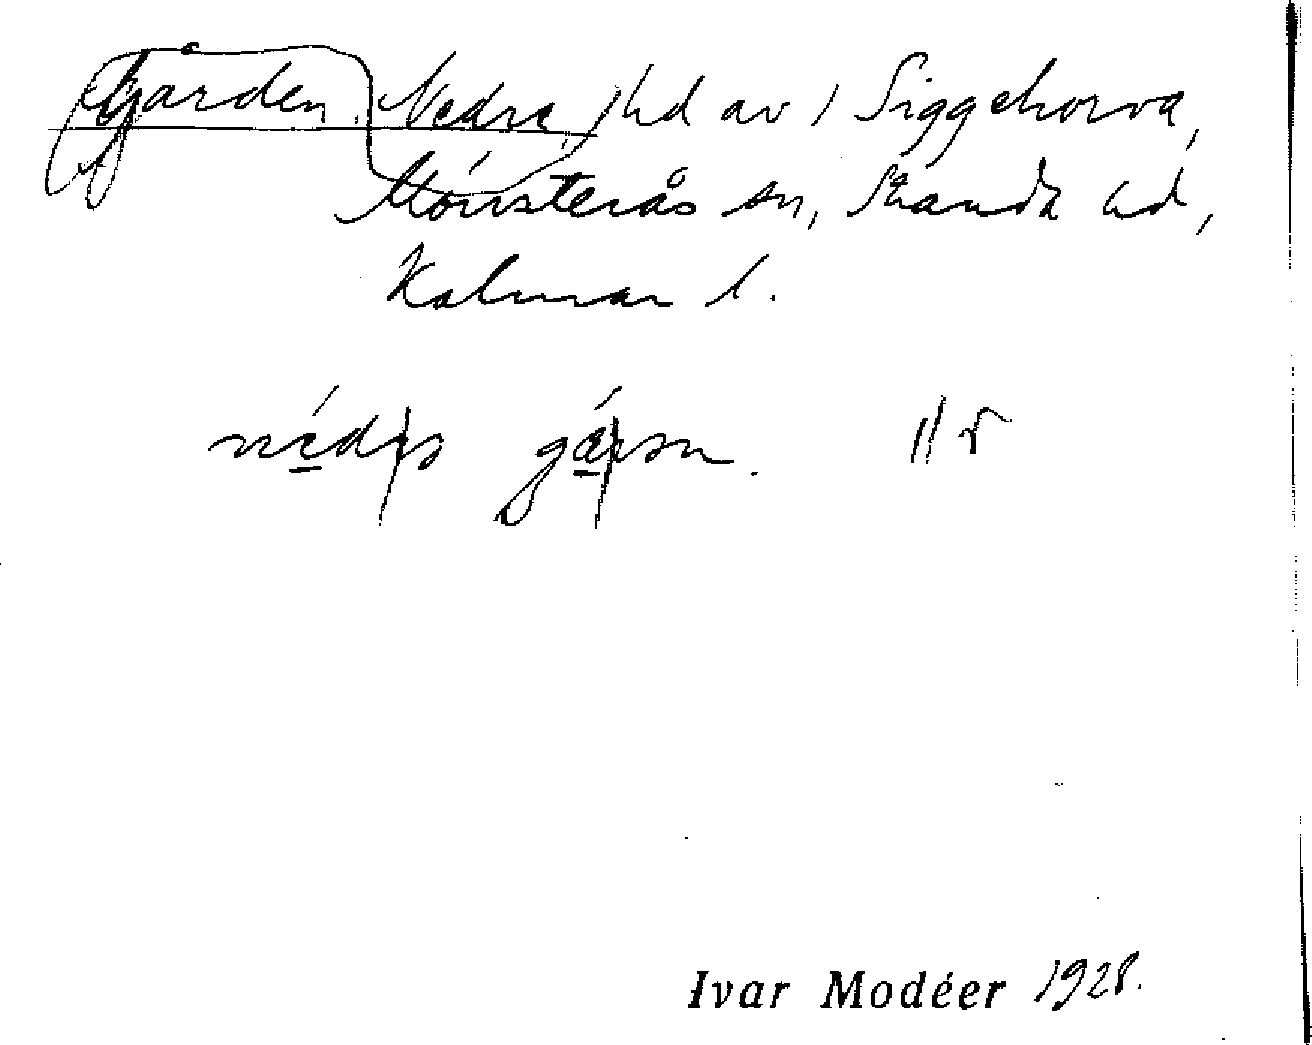 Gården, Nedre, hd av, Siggehorva,
Mönsterås sn, Stranda hd,
Kalmar l.
Ivar Modéer 1928.